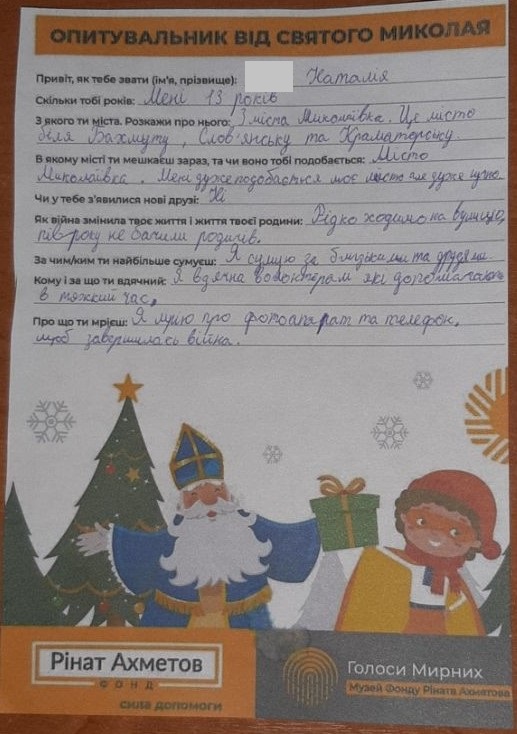 ОПИТУВАЛЬНИК ВІД СВЯТОГО МИКОЛАЯ
Привіт, як тебе звати (ім'я, прізвище): Наталія
Скільки тобі років: Мені 13 років
З якого ти міста. Розкажи про нього: З міста Миколаївка. Це місто
біля Бахмуту, Слов'янську та Краматорську.
В якому місті ти мешкаєш зараз, та чи воно тобі подобається: Місто
Миколаївка. Мені дуже подобається моє місто але дуже
Чи у тебе з'явилися нові друзі: Ні
Як війна змінила твоє життя і життя твоєї родини: Рідко ходимо на вулицю,
пів року не бачили родичів.
За чим/ким ти найбільше сумуєш: Я сумую за близькими та друзями.
Кому і за що ти вдячний: Я вдячна волонтерам які допомагають
в тяжкий час,
Про що ти мрієш: Я мрію про фотоапарат та телефон,
щоб завершилась війна.
Рінат Ахметов
ФОНД
сила допомоги
Голоси Мирних
Музей Фонду Ріната Ахметова